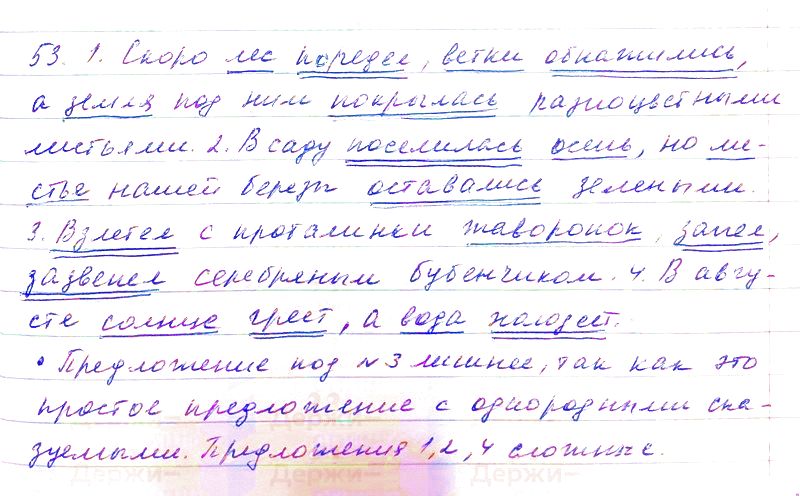 53. 1. Скоро лес поредел, ветки обнажились,
а земля под ним покрылась разноцветными
листьями. 2. В саду поселилась осень, но ли-
стье нашей берёзы оставались зелеными.
3. Взлетел с проталинки жаворонок, запел,
зазвенел серебряным бубенчиком. 4. В авгу-
сте солнце греет, а вода холодеет.
• Предложение под №3 лишнее, так как это
простое предложение с однородными ска-
зуемыми. Предложения 1, 2, 4 сложные.
Держи–
Держи–
Держи–